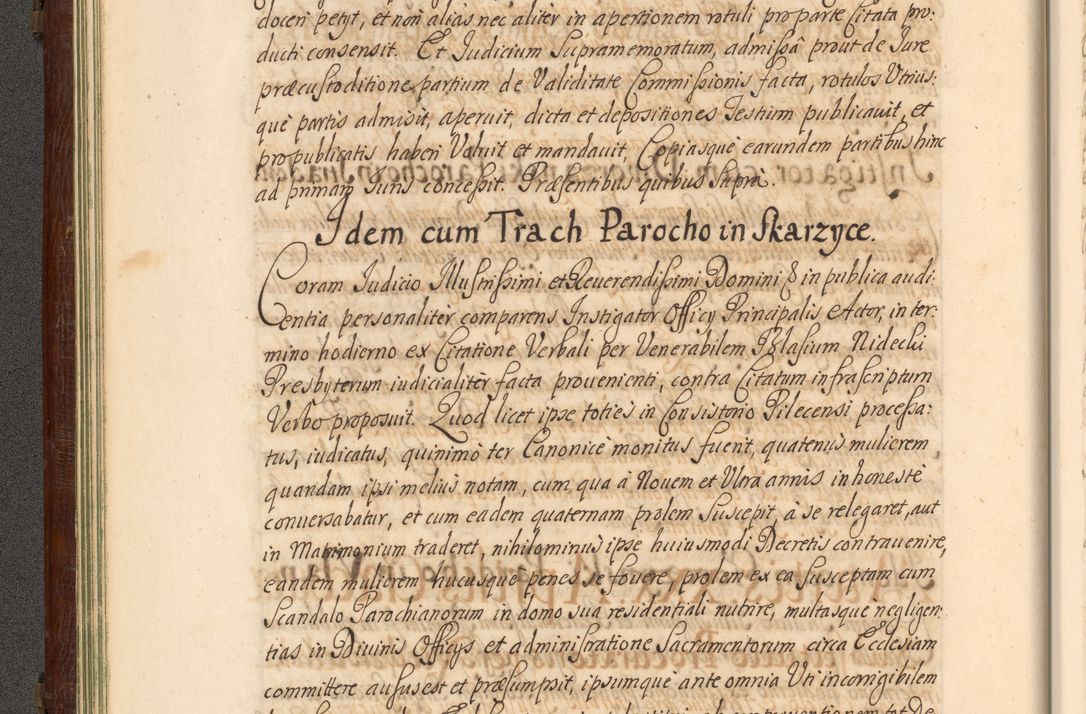 doceri petyt, et non alias nec aliter in apertionem rotuli pro parte Citata pro:
ducti consensit. Et Iudicium Supramemoratum, admissâ prout de Jure
præcustoditione partium de Validitate Commissionis facta, rotulos Utrius:
que partis admisit, aperuit, dicta et depositiones Testium publicauit, et
pro publicatis haberi Voluit et mandauit, Copiasque earundem partibus hinc
ad primam Iuris concessit. Præsentibus quibus Supra.
Idem cum Trach Parocho in Skarzyce.
Coram Iudicio Illustrissimi et Reuerendissimi Domini & in publica audi:
entia personaliter comparens Instigator Officy Principalis Actor, in ter:
mino hodierno ex Citatione Verbali per Venerabilem Blasium Nidecki
Presbyterum iudicialiter facta prouenienti, contra Citatum infrascriptum
Verbo proposuit. Quod licet ipse toties in Consistorio Pilecensi processa:
tus, iudicatus, quinimò ter Canonicè monitus fuerit, quatenus mulierem
quandam ipsi melius notam, cum qua à Nouem et Ultra annis inhonestè
conuersabatur, et cum eadem quaternam prolem Suscepit, à se relegaret, aut
in Matrimonium traderet, nihilominus ipse huiusmodi Decretis contrauenire,
eandem mulierem hucusque penes se fouere, prolem ex ea Susceptam cum
Scandalo Parochianorum in domo sua residentiali nutrire, multasque negligen:
tias in Diuinis Officys et administratione Sacramentorum circa Ecclesiam
committere ausus est et præsumpsit, ipsumque ante omnia Uti incorrigibilem